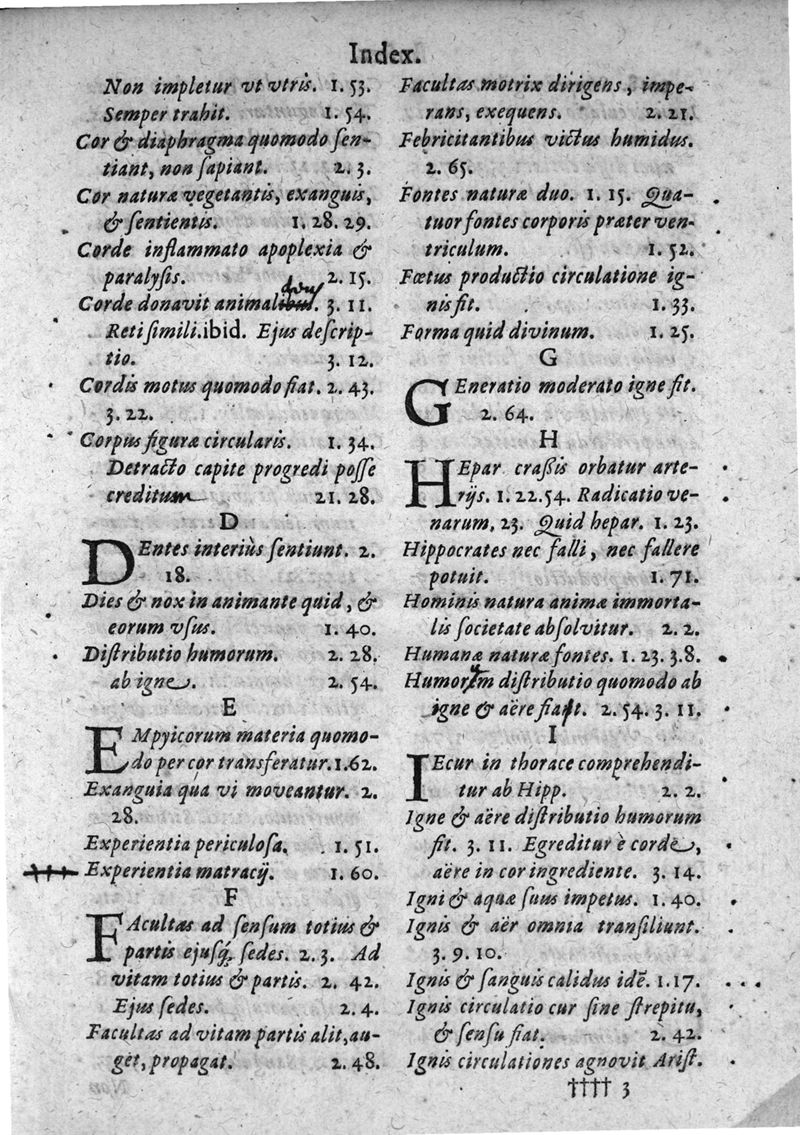 Index.
Non impletur vt vtris. 1. 53.
Semper trahit. 1. 54.
Cor & diaphragma quomodo ſen-
tiant, non ſapiant. 2. 3.
Cor naturæ vegetantis, exanguis,
& ſentientis. 1. 28. 29.
Corde inflammato apoplexia &
paralyſis. 2. 15.
Corde donavit animalibus. 3. 11.
Reti ſimili. ibid. Ejus deſcrip-
tio. 3. 12.
Cordis motus quomodo fiat. 2. 43.
3. 22.
Corpus figuræ circularis. 1. 34.
Detracto capite progredi poſſe
creditum 21. 28.
D
DEntes interiùs ſentiunt. 2.
18.
Dies & nox in animante quid, &
eorum vſus. 1. 40.
Diſtributio humorum. 2. 28.
ab igne. 2. 54.
E
EMpyicorum materia quomo-
do per cor transferatur. 1. 62.
Exanguia quà vi moveantur. 2.
28.
Experientia periculoſa. 1. 51.
Experientia matracij. 1. 60.
F
FAcultas ad ſenſum totius &
partis ejuſq́; ſedes. 2. 3. Ad
vitam totius & partis. 2. 42.
Ejus ſedes. 2. 4.
Facultas ad vitam partis alit, au-
get, propagat. 2. 48.
Facultas motrix dirigens, impe-
rans, exequens. 2. 21.
Febricitantibus victus humidus.
2. 65.
Fontes naturæ duo. 1. 15. Qua-
tuor fontes corporis præter ven-
triculum. 1. 52.
Fœtus productio circulatione ig-
nis fit. 1. 33.
Forma quid divinum. 1. 25.
G
GEneratio moderato igne fit.
2. 64.
H
HEpar craßis orbatur arte-
rijs. 1. 22. 54. Radicatio ve-
narum, 23. Quid hepar. 1. 23.
Hippocrates nec falli, nec fallere
potuit. 1. 71.
Hominis natura animæ immorta-
lis ſocietate abſolvitur. 2. 2.
Humanæ naturæ fontes. 1. 23. 3. 8.
Humorum diſtributio quomodo ab
igne & aëre fiat. 2. 54. 3. 11.
I
IEcur in thorace comprehendi-
tur ab Hipp. 2. 2.
Igne & aëre diſtributio humorum
fit. 3. 11. Egreditur è corde,
aëre in cor ingrediente. 3. 14.
Igni & aquæ ſuus impetus. 1. 40.
Ignis & aër omnia tranſiliunt.
3. 9. 10.
Ignis & ſanguis calidus idẽ. 1. 17.
Ignis circulatio cur ſine ſtrepitu,
& ſenſu fiat. 2. 42.
Ignis circulationes agnovit Ariſt.
†††† 3